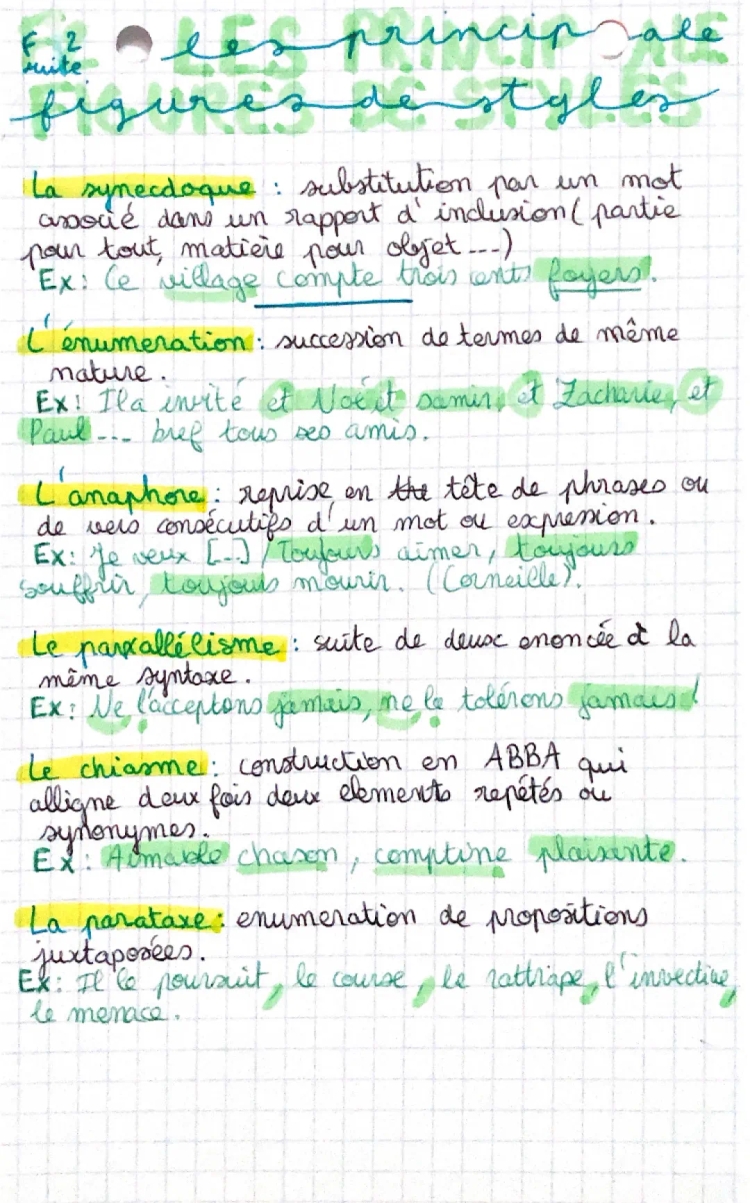 F 2 les principale
suite
figures de styles
La synecdoque : substitution par un mot
associé dans un rapport d'inclusion ( partie
pour tout, matière pour objet ...)
Ex : Ce village compte trois cents foyers.
L'énumeration : succession de termes de même
nature.
Ex : Il a invité et Noé et samir, et Zacharie, et
Paul ... bref tous ses amis.
L'anaphore : reprise en the tête de phrases ou
de vers consécutifs d'un mot ou expression.
Ex : Je veux [...] / Toujours aimer, toujours
souffrir, toujours mourir. (Corneille).
Le parallélisme : suite de deux enoncée à la
même syntaxe.
Ex : Ne l'acceptons jamais, ne le tolérons jamais !
Le chiasme : construction en ABBA qui
alligne deux fois deux elements repétés ou
synonymes.
Ex : Aimable chason, comptine plaisante.
La parataxe : enumeration de propositions
juxtaposées.
Ex : Il le poursuit, le course, le rattrape, l'invective,
le menace.